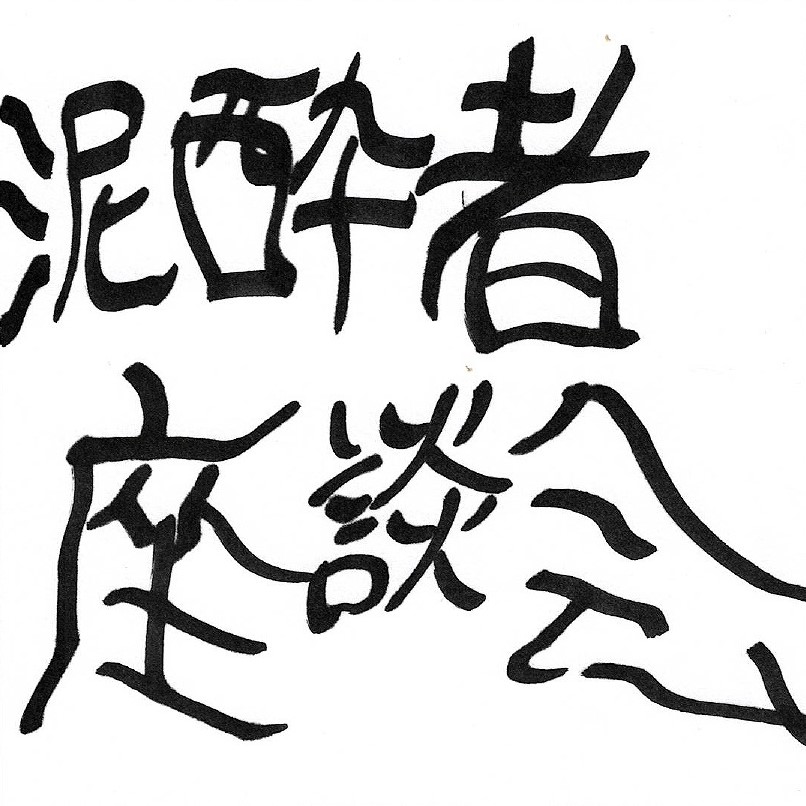 泥酔者
座談会